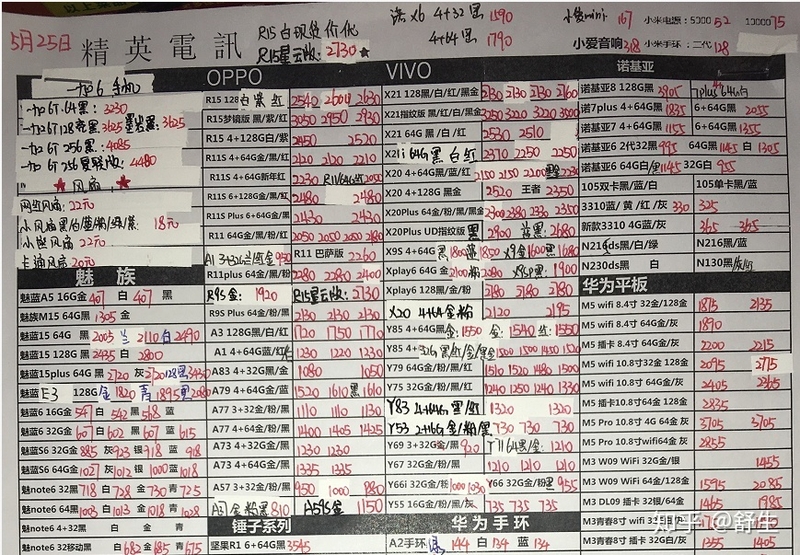 5月25日 精英電訊
R15白现货价优
R15星云版: 2730★
诺X6 4+32黑 1590
4+64黑 1790
小爱mini 167 小米电源: 5000 52 10000 75
小爱音响 318 小米手环: 二代 128
一加6 手机
一加6T 64黑: 3230
一加6T 256黑: 4085
★风扇★
网红风扇: 22元
小风扇黑/白/蓝/粉/绿/紫: 18元
卡通风扇 20元
魅族
魅蓝A5 16G金 407 白 407 黑
魅族M15 64G黑 1305 金
魅蓝15 64G 黑 2005 兰 2110 白 2490
魅蓝15 128G 黑 2435 白 2800
魅蓝 E3 128G 金 1820 青 1895 黑
魅蓝6 16G金 547 白 542 黑 518 蓝
魅蓝6 32G金 607 白 602 黑 607 蓝 615
魅蓝S6 32G金 885 灰 923 银 918 蓝 918
魅蓝S6 64G金 1027 灰 1012 银 1000 蓝 1018
魅蓝note6 32黑 718 白 728 金 730 青 725
魅蓝note6 64黑 1003 白 1012 金 1018 青 1028
魅蓝note6 4+32黑 白 金 青
魅蓝note6 32移动黑 白 682 金 685 青 675
OPPO
R15 128 白紫红 2540 2600 2630
R15梦镜版 黑/紫/红 3050 2950 2930
R15 4+128G白/紫 2450 2520
R11S 4+64G金/黑/红 2120 2120 2210
R11S 4+64G新年红 2230
R11S 6+128G金/黑 2480 2480
R11S Plus 6+64G金/黑 2430 2430
R11 64G金/黑/粉/红 2050 2050 2050 2180
R11 巴萨版 2260
R11plus 64G金/黑/粉 2280 2280 2400
R9S金: 1920 R15星云版: 2730
R9S Plus 64G金/粉/黑 2130 2130 2130
A3 128G黑/白/红 1720 1750 1710
A1 4+64G蓝/白/红 1230 1220 1230
A83 4+32G黑/金 1080 1050
A79 4+64G金/黑/蓝 1520 1610 黑 1610
A77 3+32金/粉/黑 1110 1110 1130
A77 4+64G金/粉/黑 1400 1405 1425
A73 4+32G金/黑 1230 1230
A73 4+64G金/黑 1335 1315
A57 3+32金/粉/黑 950 1000 980
A37金粉黑 810 A59S金 1150
锤子系列
坚果R1 6+64G黑 3545
VIVO
X21 128黑/白/红/黑金 2130 2130 2130 2160
X21指纹版 黑/红/黑金 3050 3220 3220 3500
X21 64G 黑/白/红 2530 2510
X21i 64G 黑 白 红 2370 2250 2250
X20 4+64G 黑/金/蓝/红 2150 2150 2100
X20 4+128G 黑金 2520 王者 2350
X20Plus 64G金/粉/黑/黑金 2300 2380 2330 2350
X20Plus UD指纹版 黑 2900 蓝黑 2680
X9S 4+64G 黑 1800 蓝 1850 X9金 1600 黑 1680
Xplay6 64G 金 2100 粉 2080 X9SP黑 1900
Xplay6 128G 金/粉/黑 2180 2180 2180
X20 4+64金粉 2120 2195
Y85 4+64G/黑 金: 1550 金: 1540 红: 1550
Y85 4+32G黑/红/金/黑金 1500 1500 1450 1520
Y79 64G金/黑/粉/红 1510 1520 1480 1500
Y75 32G金/黑/粉/红 1240 1250 1240 1330
Y83 4+64G黑/红 1320 1320
Y53 2+16G金/粉/黑 730 730 730
Y69 3+32G金/黑 920 Y71 64黑/金: 1210
Y67 32G金/粉/黑 1210 1210 1210
Y66i 32G金/粉 1000 1030 Y66 32G金/粉黑 955
Y55 16G金/粉/黑/灰 735 735 735
华为手环
A2手环 绿 144 白 134 蓝 134
诺基亚
诺基亚8 128G黑 3905 7plus 64G白
诺7plus 4+64G黑 1835 6+64G黑 2055
诺基亚7 4+64G黑 1155 6+64G黑 1355
诺基亚6 2代32黑 995 64G黑 1145 白 1305
诺基亚6 64G白/黑 1145 32G白 955
105双卡黑/蓝/白 105单卡黑/蓝
3310蓝/黄/红/灰 330 325
新款3310 4G蓝/灰 365 365
N216ds黑/白/绿 N216黑/蓝
N230ds黑 白 N130黑/灰/红
华为平板
M5 wifi 8.4寸 32金/128金 1875 2135
M5 wifi 8.4寸 64G金/灰 1890
M5 插卡 8.4寸 64金/灰 2200 2215
M5 wifi 10.8寸32金 128金 2095 2775
M5 wifi 10.8寸 64G金/灰 2405 2365
M5 插卡 10.8寸64金 128金 2835
M5 Pro 10.8寸 4G 64金/灰 3705 3705
M5 Pro 10.8寸wifi64金 灰 2855
M3 W09 WiFi 32G金/银 1455
M3 W09 WiFi 64金 128金 1595 2085
M3 DL09 插卡 32银/64金 1465 1985
M3青春8寸 wifi 32
M3青春8寸
知乎 @舒生